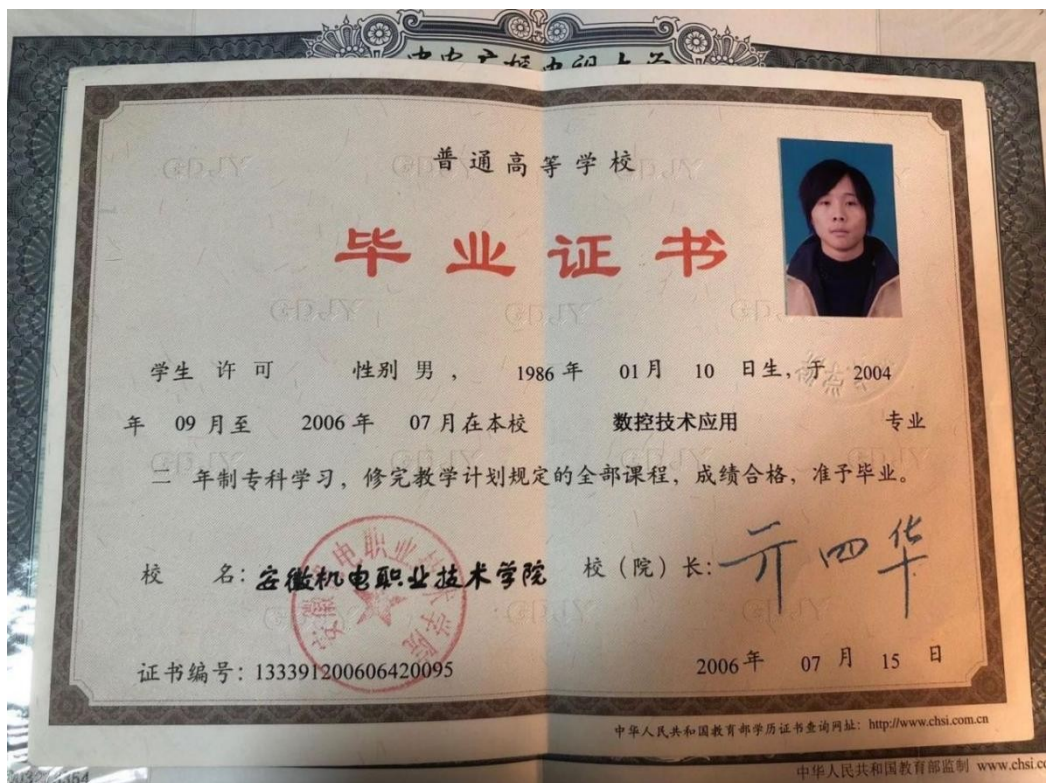 中央广播电视大学
普通高等学校
毕业证书
学生 许可 性别 男 , 1986 年 01 月 10 日生, 于 2004
年 09 月至 2006 年 07 月在本校 数控技术应用 专业
二 年制专科学习, 修完教学计划规定的全部课程, 成绩合格, 准予毕业。
校 名: 安徽机电职业技术学院 校（院）长:
安徽机电职业技术学院
证书编号: 133391200606420095 2006 年 07 月 15 日
中华人民共和国教育部学历证书查询网址: http://www.chsi.com.cn
中华人民共和国教育部监制 www.chsi.co